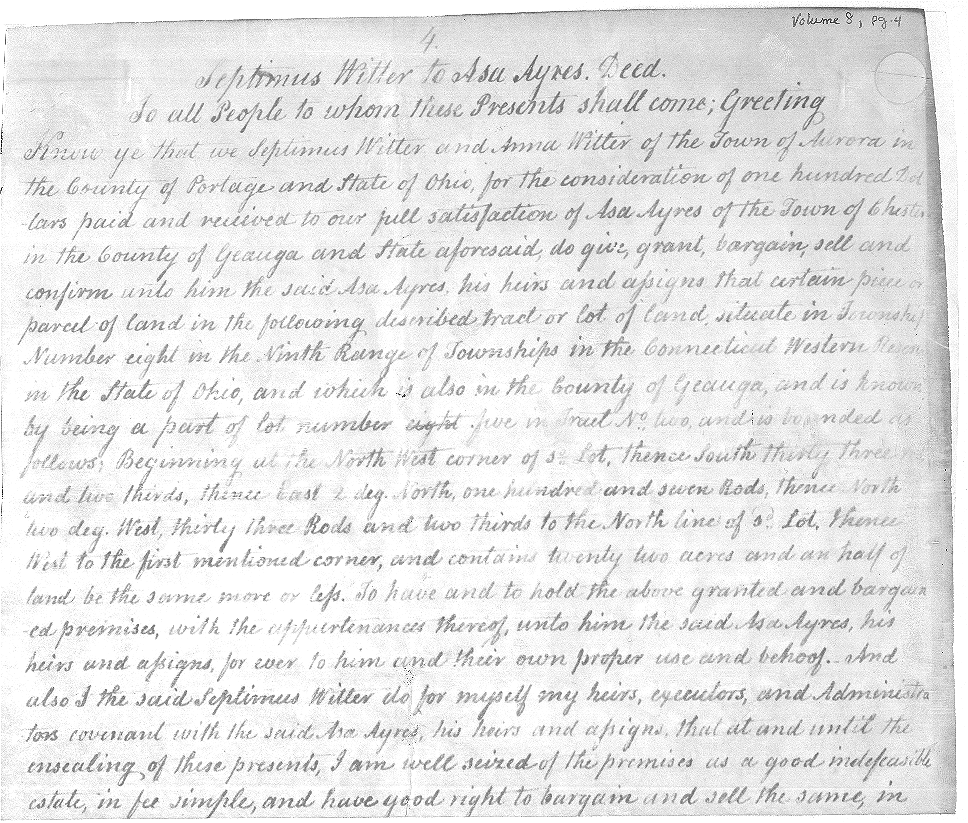 Volume 8, pg. 4
4.
Septimus Witter to Asa Ayres. Deed.
To all People to whom these Presents shall come; Greeting
Know ye that we Septimus Witter and Anna Witter of the Town of Aurora in
the County of Portage and State of Ohio, for the consideration of one hundred Dol
-lars paid and received to our full satisfaction of Asa Ayres of the Town of Chester
in the County of Geauga and State aforesaid, do give, grant, bargain, sell and
confirm unto him the said Asa Ayres, his heirs and assigns that certain piece or
parcel of land in the following described tract or lot of land, situate in Township
Number eight in the Ninth Range of Townships in the Connecticut Western Reserve
in the State of Ohio, and which is also in the County of Geauga, and is known
by being a part of lot number eight five in Tract No. two, and is bounded as
follows; Beginning at the North West corner of sd. Lot, thence South thirty three
and two thirds, thence East 2 deg. North, one hundred and seven Rods, thence North
two deg. West, thirty three Rods and two thirds to the North line of sd. Lot, thence
West to the first mentioned corner, and contains twenty two acres and an half of
land be the same more or less. To have and to hold the above granted and bargain
-ed premises, with the appurtenances thereof, unto him the said Asa Ayres, his
heirs and assigns, for ever to him and their own proper use and behoof. And
also I the said Septimus Witter do for myself my heirs, executors, and Administra
tors covenant with the said Asa Ayres, his heirs and assigns, that at and until the
ensealing of these presents, I am well seized of the premises as a good indefeasible
estate, in fee simple, and have good right to bargain and sell the same, in